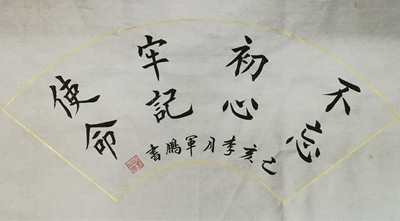 不忘
初心
牢記
使命
己亥季月軍鵬書